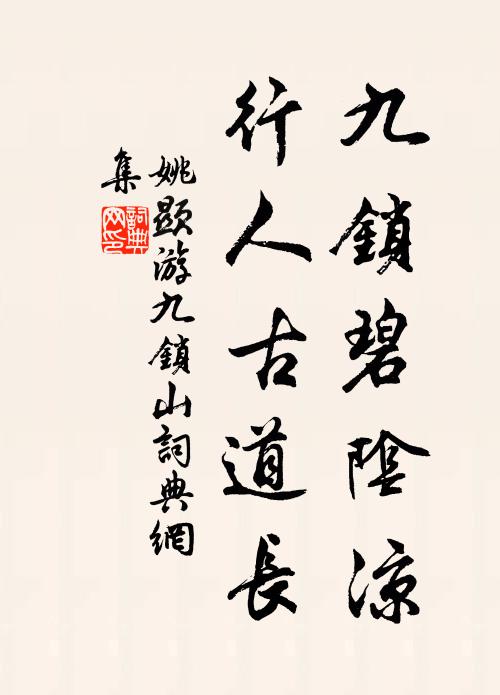 九鎖碧陰凉
行人古道長
姚顯游九鎖山詞典網
集
詞典网印